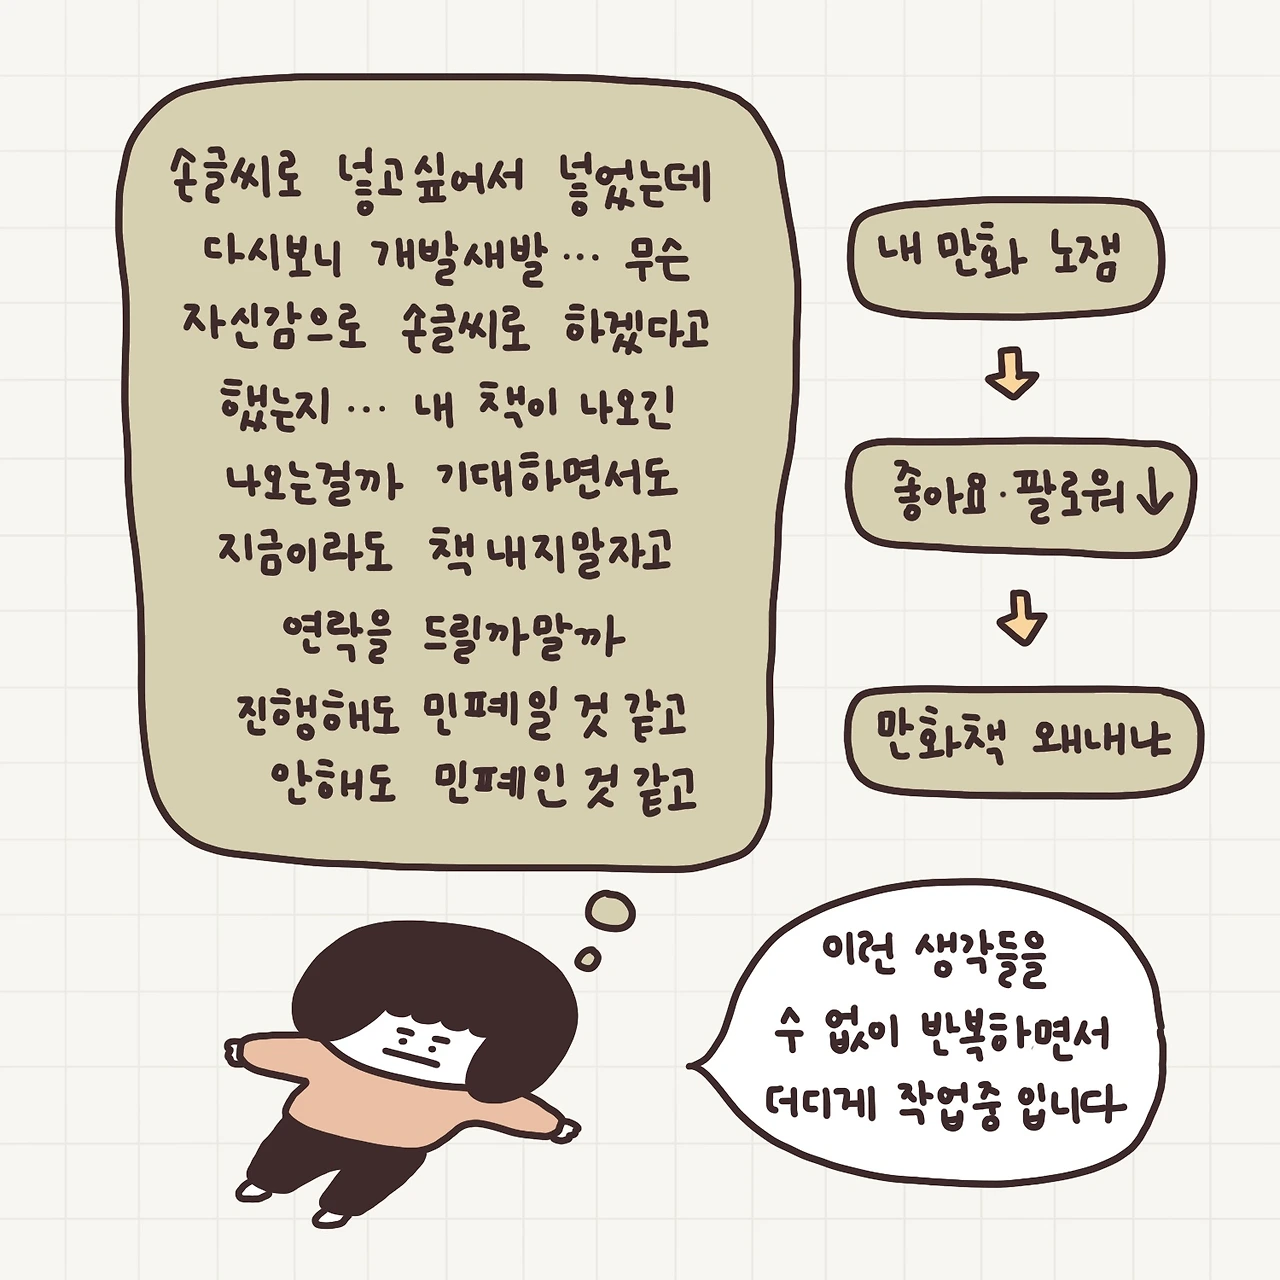 손글씨로 넣고싶어서 넣었는데
다시보니 개발새발… 무슨
자신감으로 손글씨로 하겠다고
했는지… 내 책이 나오긴
나오는걸까 기대하면서도
지금이라도 책 내지말자고
연락을 드릴까말까
진행해도 민폐일 것 같고
안해도 민폐인 것 같고
내 만화 노잼
좋아요·팔로워↓
만화책 왜내냐
이런 생각들을
수 없이 반복하면서
더디게 작업중 입니다